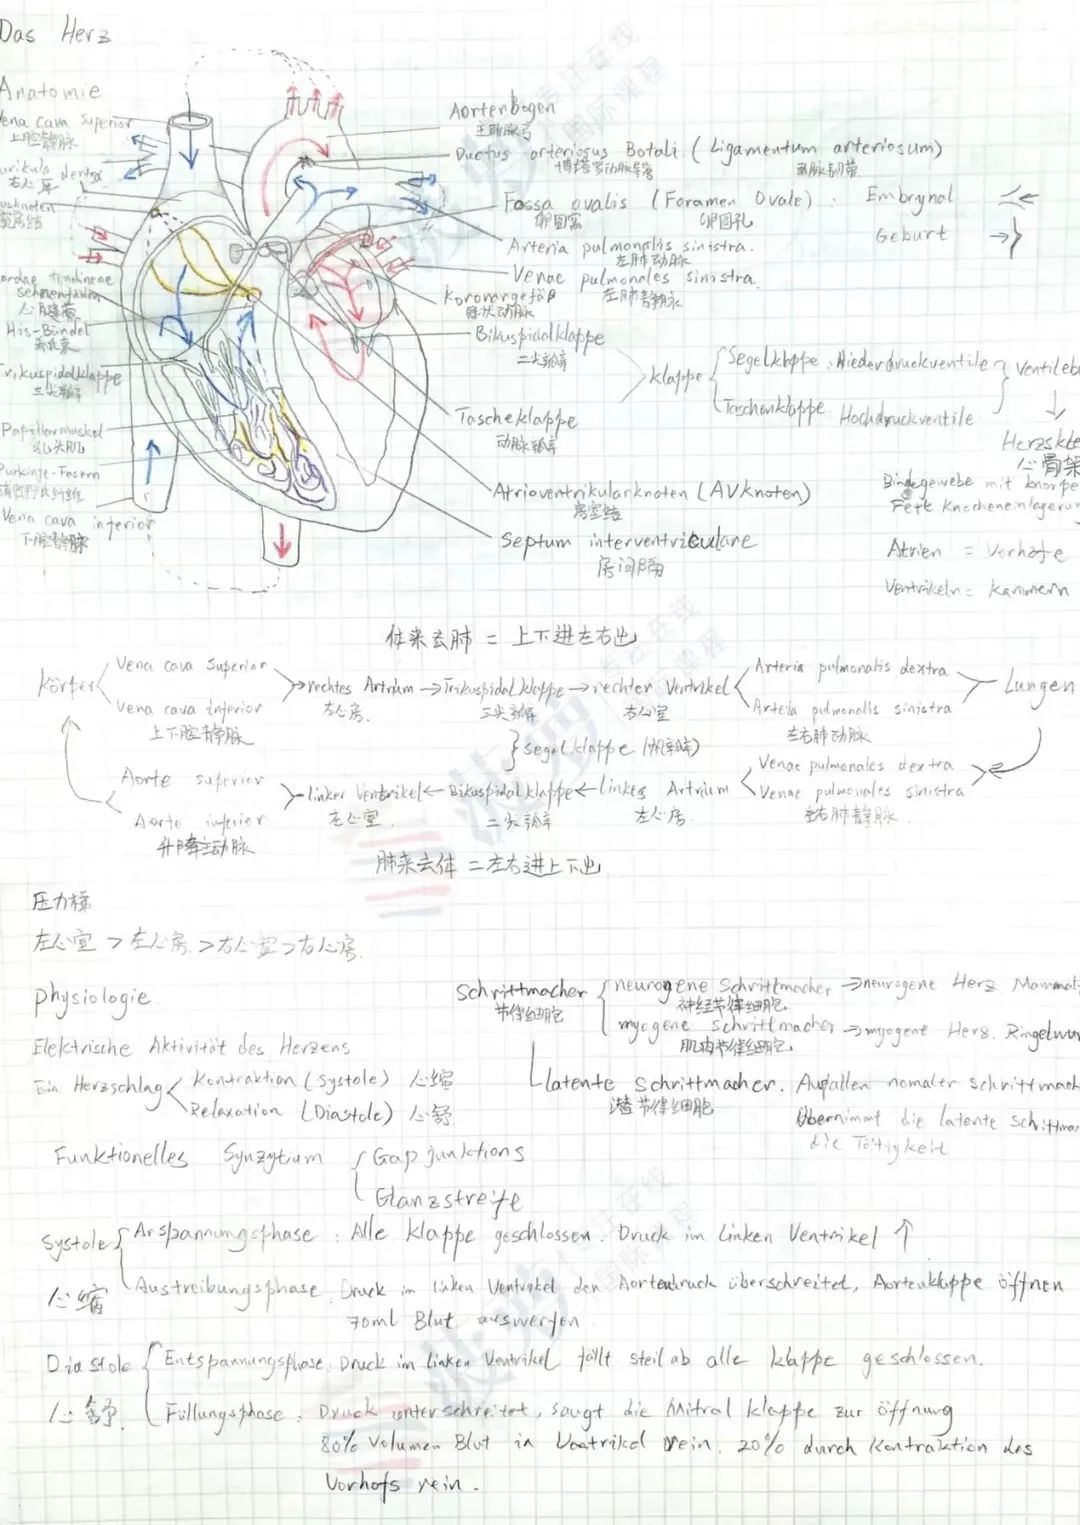 Das Herz
Anatomie
ena cava superior
上腔静脉
右心耳
Cordae tendineae
Sehnenfäden
心腱索
His-Bündel
希氏束
Trikuspidalklappe
三尖瓣
Papillarmuskel
乳头肌
Purkinje-Fasern
Vena cava inferior
下腔静脉
Aortenbogen
主动脉弓
Ductus arteriosus Botali (Ligamentum arteriosum)
博塔罗动脉导管 动脉韧带
Fossa ovalis (Foramen Ovale). Embrynal
卵圆窝 卵圆孔
Geburt
Arteria pulmonalis sinistra.
左肺动脉
Venae pulmonales sinistra.
左肺静脉
Koronargefäß
冠状动脉
Bikuspidalklappe
二尖瓣
Klappe
Segelklappe: Niederdruckventile
Taschenklappe: Hochdruckventile
Ventileb
Herzske
心骨架
Bindegewebe mit knorpe
Fett Knocheneinlagerun
Atrien = Vorhöfe
Ventrikeln = Kammern
Tascheklappe
动脉瓣
Atrioventrikularknoten (AVknoten)
房室结
Septum interventriculare
房间隔
体来去肺 = 上下进左右出
Körper
Vena cava superior
Vena cava inferior
上下腔静脉
→ rechtes Artrium → Trikuspidalklappe → rechter Ventrikel
右心房. 三尖瓣 右心室
Arteria pulmonalis dextra
Arteria pulmonalis sinistra
左右肺动脉
Lungen
} Segelklappe (帆状瓣)
Aorte superior
Aorte inferior
升降主动脉
linker Ventrikel ← Bikuspidalklappe ← linkes Artrium
左心室. 二尖瓣 左心房.
Venae pulmonales dextra
Venae pulmonales sinistra
左右肺静脉.
肺来去体 = 左右进上下出
压力梯
左心室 > 左心房 > 右心室 > 右心房.
Physiologie
Elektrische Aktivität des Herzens
Ein Herzschlag
Kontraktion (Systole) 心缩
Relaxation (Diastole) 心舒
Schrittmacher
节律细胞
neurogene Schrittmacher → neurogene Herz
神经节律细胞
myogene Schrittmacher → myogent Herz. Ringelwur
肌肉节律细胞
latente Schrittmacher. Ausfallen nomaler schrittmach
潜节律细胞
Übernimmt die latente Schrittmac
die Tätigkeit
Funktionelles Synzytium
Gap junktions
Glanzstreife
Systole
心缩
Anspannungsphase: Alle Klappe geschlossen. Druck im Linken Ventrikel ↑
Austreibungsphase: Druck im linken Ventrikel den Aortendruck überschreitet, Aortenklappe öffnen
70ml Blut auswerfen.
Diastole
心舒.
Entspannungsphase: Druck im linken Ventrikel fällt steil ab alle Klappe geschlossen.
Füllungsphase: Druck unterschreitet, saugt die Mitral klappe zur öffnung
80% Volumen Blut in Ventrikel rein. 20% durch Kontraktion des
Vorhofs rein.